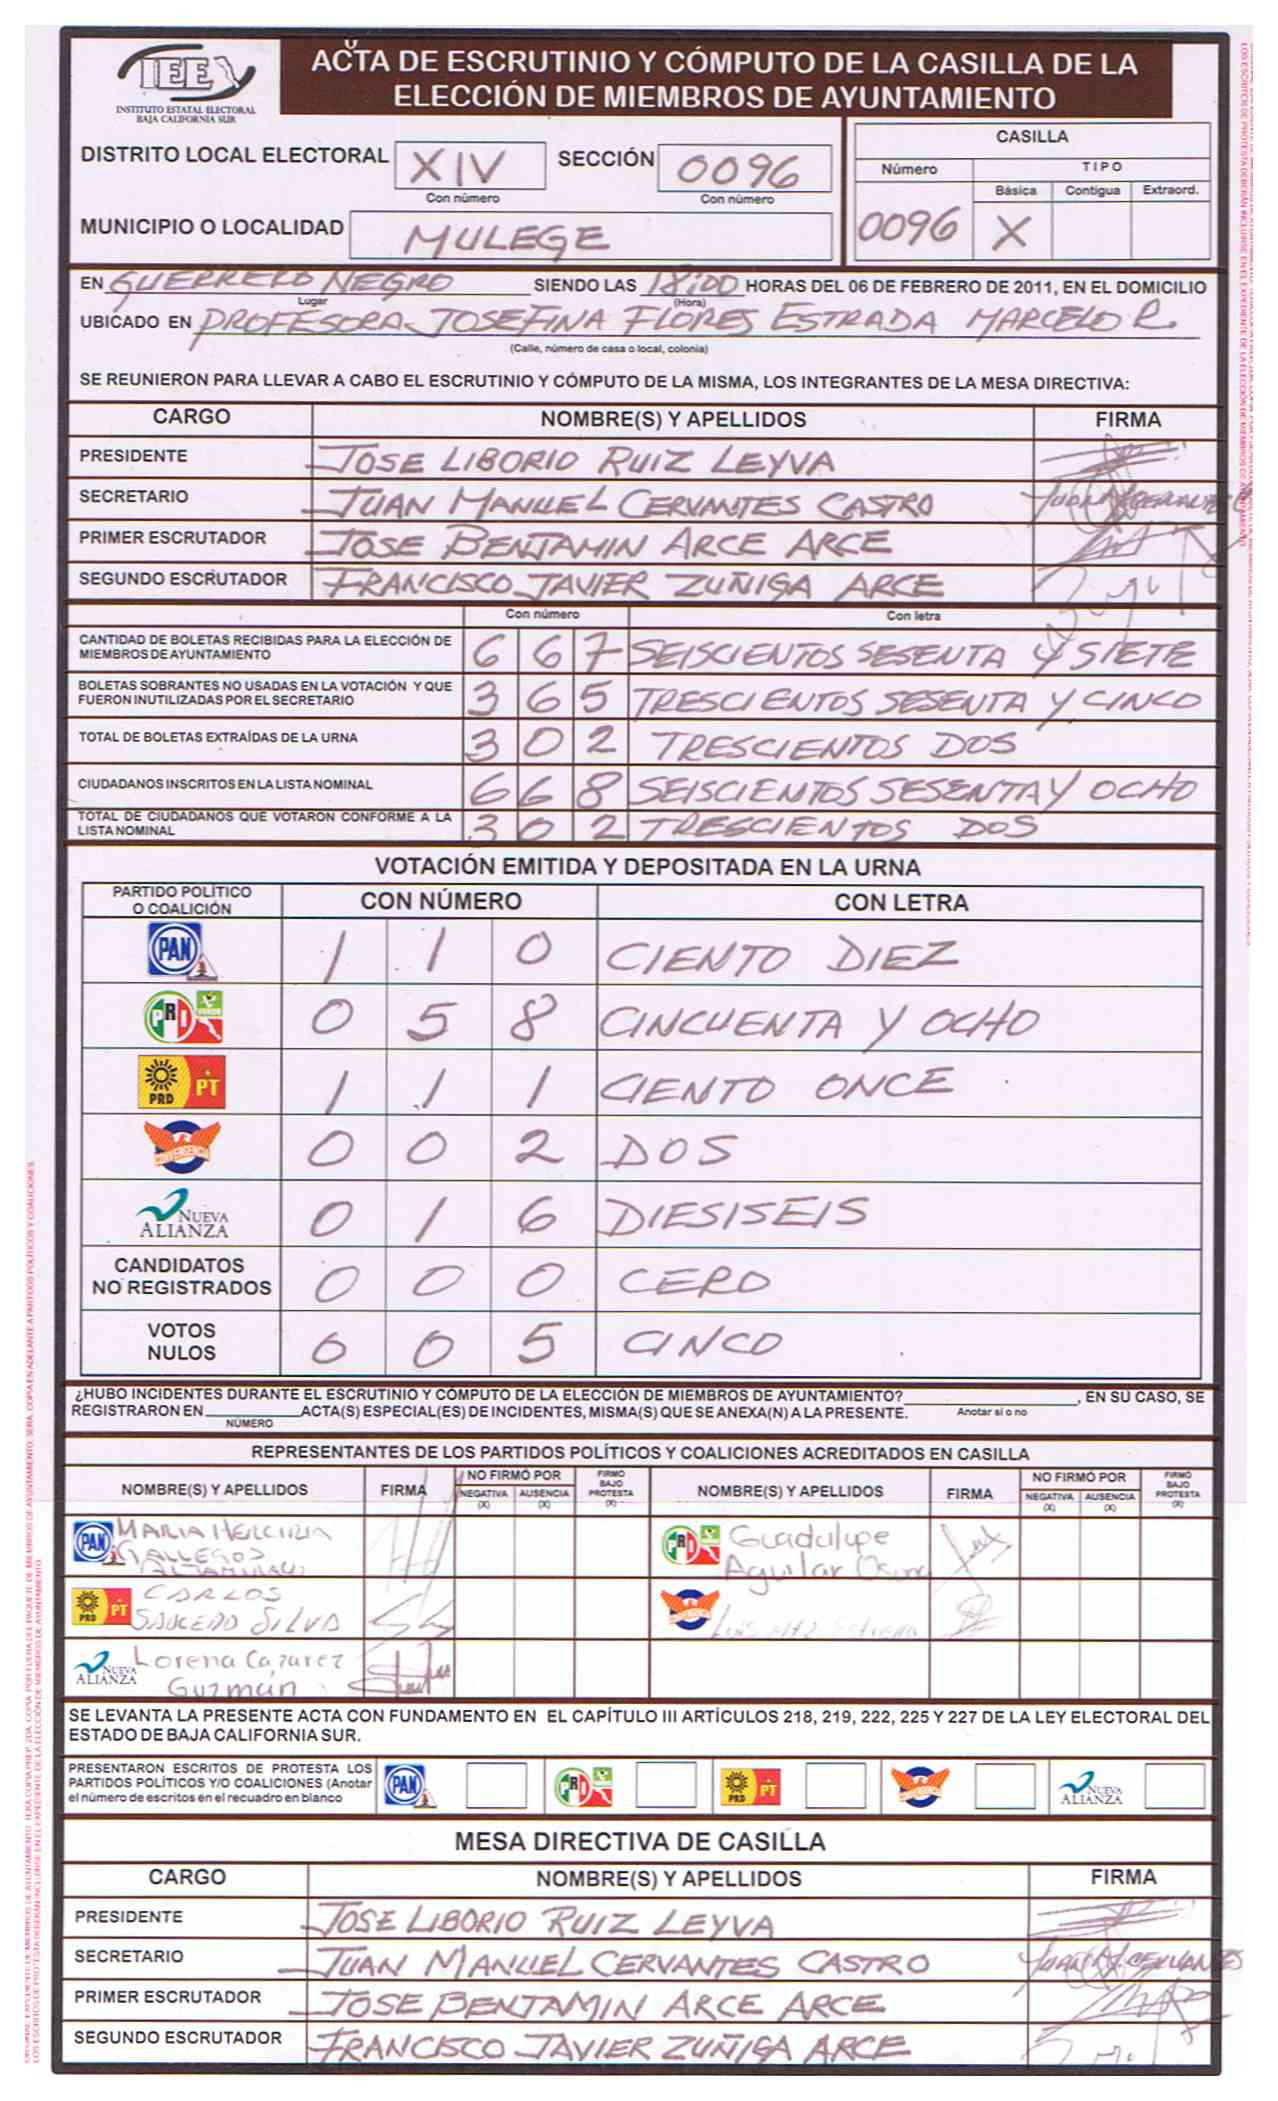 IEE
INSTITUTO ESTATAL ELECTORAL
BAJA CALIFORNIA SUR
ACTA DE ESCRUTINIO Y CÓMPUTO DE LA CASILLA DE LA
ELECCIÓN DE MIEMBROS DE AYUNTAMIENTO
DISTRITO LOCAL ELECTORAL XIV SECCIÓN 0096
Con número Con número
MUNICIPIO O LOCALIDAD MULEGE
CASILLA
Número TIPO
Básica Contigua Extraord.
0096 X
EN GUERRERO NEGRO SIENDO LAS 18:00 HORAS DEL 06 DE FEBRERO DE 2011, EN EL DOMICILIO
Lugar (Hora)
UBICADO EN PROFESORA JOSEFINA FLORES ESTRADA MARCELO R.
(Calle, número de casa o local, colonia)
SE REUNIERON PARA LLEVAR A CABO EL ESCRUTINIO Y CÓMPUTO DE LA MISMA, LOS INTEGRANTES DE LA MESA DIRECTIVA:
CARGO NOMBRE(S) Y APELLIDOS FIRMA
PRESIDENTE JOSE LIBORIO RUIZ LEYVA
SECRETARIO JUAN MANUEL CERVANTES CASTRO
PRIMER ESCRUTADOR JOSE BENJAMIN ARCE ARCE
SEGUNDO ESCRUTADOR FRANCISCO JAVIER ZUÑIGA ARCE
Con número Con letra
CANTIDAD DE BOLETAS RECIBIDAS PARA LA ELECCIÓN DE
MIEMBROS DE AYUNTAMIENTO 6 6 7 SEISCIENTOS SESENTA Y SIETE
BOLETAS SOBRANTES NO USADAS EN LA VOTACIÓN Y QUE
FUERON INUTILIZADAS POR EL SECRETARIO 3 6 5 TRESCIENTOS SESENTA Y CINCO
TOTAL DE BOLETAS EXTRAÍDAS DE LA URNA 3 0 2 TRESCIENTOS DOS
CIUDADANOS INSCRITOS EN LA LISTA NOMINAL 6 6 8 SEISCIENTOS SESENTA Y OCHO
TOTAL DE CIUDADANOS QUE VOTARON CONFORME A LA
LISTA NOMINAL 3 0 2 TRESCIENTOS DOS
VOTACIÓN EMITIDA Y DEPOSITADA EN LA URNA
PARTIDO POLÍTICO
O COALICIÓN CON NÚMERO CON LETRA
PAN 1 1 0 CIENTO DIEZ
PRI VERDE 0 5 8 CINCUENTA Y OCHO
PRD PT 1 1 1 CIENTO ONCE
CONVERGENCIA 0 0 2 DOS
NUEVA ALIANZA 0 1 6 DIESISEIS
CANDIDATOS
NO REGISTRADOS 0 0 0 CERO
VOTOS
NULOS 0 0 5 CINCO
¿HUBO INCIDENTES DURANTE EL ESCRUTINIO Y CÓMPUTO DE LA ELECCIÓN DE MIEMBROS DE AYUNTAMIENTO? , EN SU CASO, SE
REGISTRARON EN ACTA(S) ESPECIAL(ES) DE INCIDENTES, MISMA(S) QUE SE ANEXA(N) A LA PRESENTE. Anotar si o no
NÚMERO
REPRESENTANTES DE LOS PARTIDOS POLÍTICOS Y COALICIONES ACREDITADOS EN CASILLA
NOMBRE(S) Y APELLIDOS FIRMA NO FIRMÓ POR NEGATIVA (X) AUSENCIA (X) FIRMÓ BAJO PROTESTA (X) NOMBRE(S) Y APELLIDOS FIRMA NO FIRMÓ POR NEGATIVA (X) AUSENCIA (X) FIRMÓ BAJO PROTESTA (X)
PAN MARIA
GALLEGOS
PRI VERDE Guadalupe
Aguilar
PRD PT CARLOS
SAUCEDO SILVA
Luis
NUEVA ALIANZA Lorena Cazarez
Guzmán
SE LEVANTA LA PRESENTE ACTA CON FUNDAMENTO EN EL CAPÍTULO III ARTÍCULOS 218, 219, 222, 225 Y 227 DE LA LEY ELECTORAL DEL
ESTADO DE BAJA CALIFORNIA SUR.
PRESENTARON ESCRITOS DE PROTESTA LOS
PARTIDOS POLÍTICOS Y/O COALICIONES (Anotar
el número de escritos en el recuadro en blanco
PAN PRI PRD PT NUEVA ALIANZA
MESA DIRECTIVA DE CASILLA
CARGO NOMBRE(S) Y APELLIDOS FIRMA
PRESIDENTE JOSE LIBORIO RUIZ LEYVA
SECRETARIO JUAN MANUEL CERVANTES CASTRO
PRIMER ESCRUTADOR JOSE BENJAMIN ARCE ARCE
SEGUNDO ESCRUTADOR FRANCISCO JAVIER ZUÑIGA ARCE